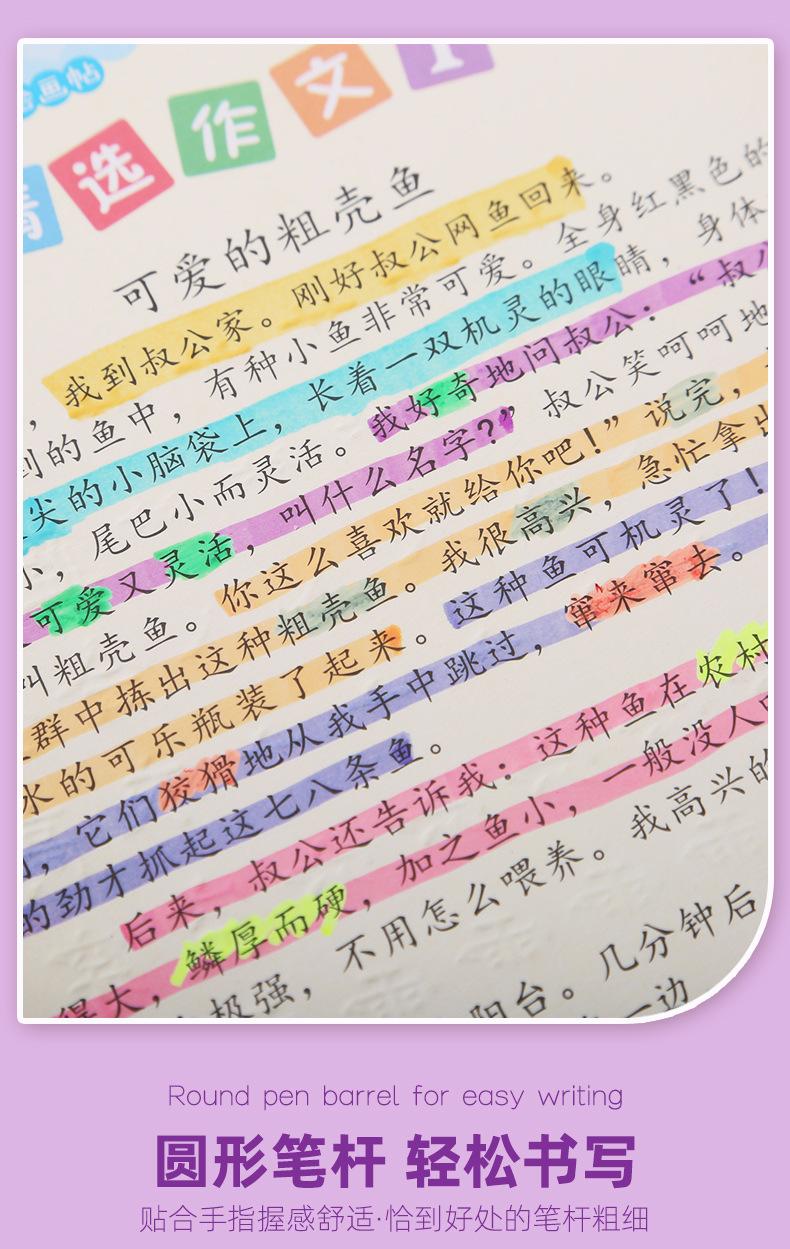 绘画帖
精选作文1
可爱的粗壳鱼
，我到叔公家。刚好叔公网鱼回来。
到的鱼中，有种小鱼非常可爱。全身红黑色的
尖的小脑袋上，长着一双机灵的眼睛，身体
小，尾巴小而灵活。我好奇地问叔公：“叔公
可爱又灵活，叫什么名字？”叔公笑呵呵地
叫粗壳鱼。你这么喜欢就给你吧！”说完，
群中拣出这种粗壳鱼。我很高兴，急忙拿出
水的可乐瓶装了起来。这种鱼可机灵了！
，它们狡猾地从我手中跳过，窜来窜去。
的劲才抓起这七八条鱼。
后来，叔公还告诉我：这种鱼在农村
得大，鳞厚而硬，加之鱼小，一般没人
极强，不用怎么喂养。我高兴的
阳台。几分钟后
一边
Round pen barrel for easy writing
圆形笔杆 轻松书写
贴合手指握感舒适·恰到好处的笔杆粗细